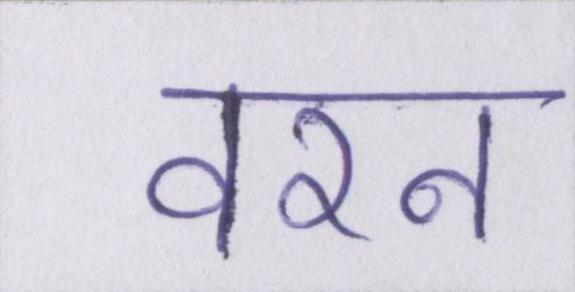 वरन